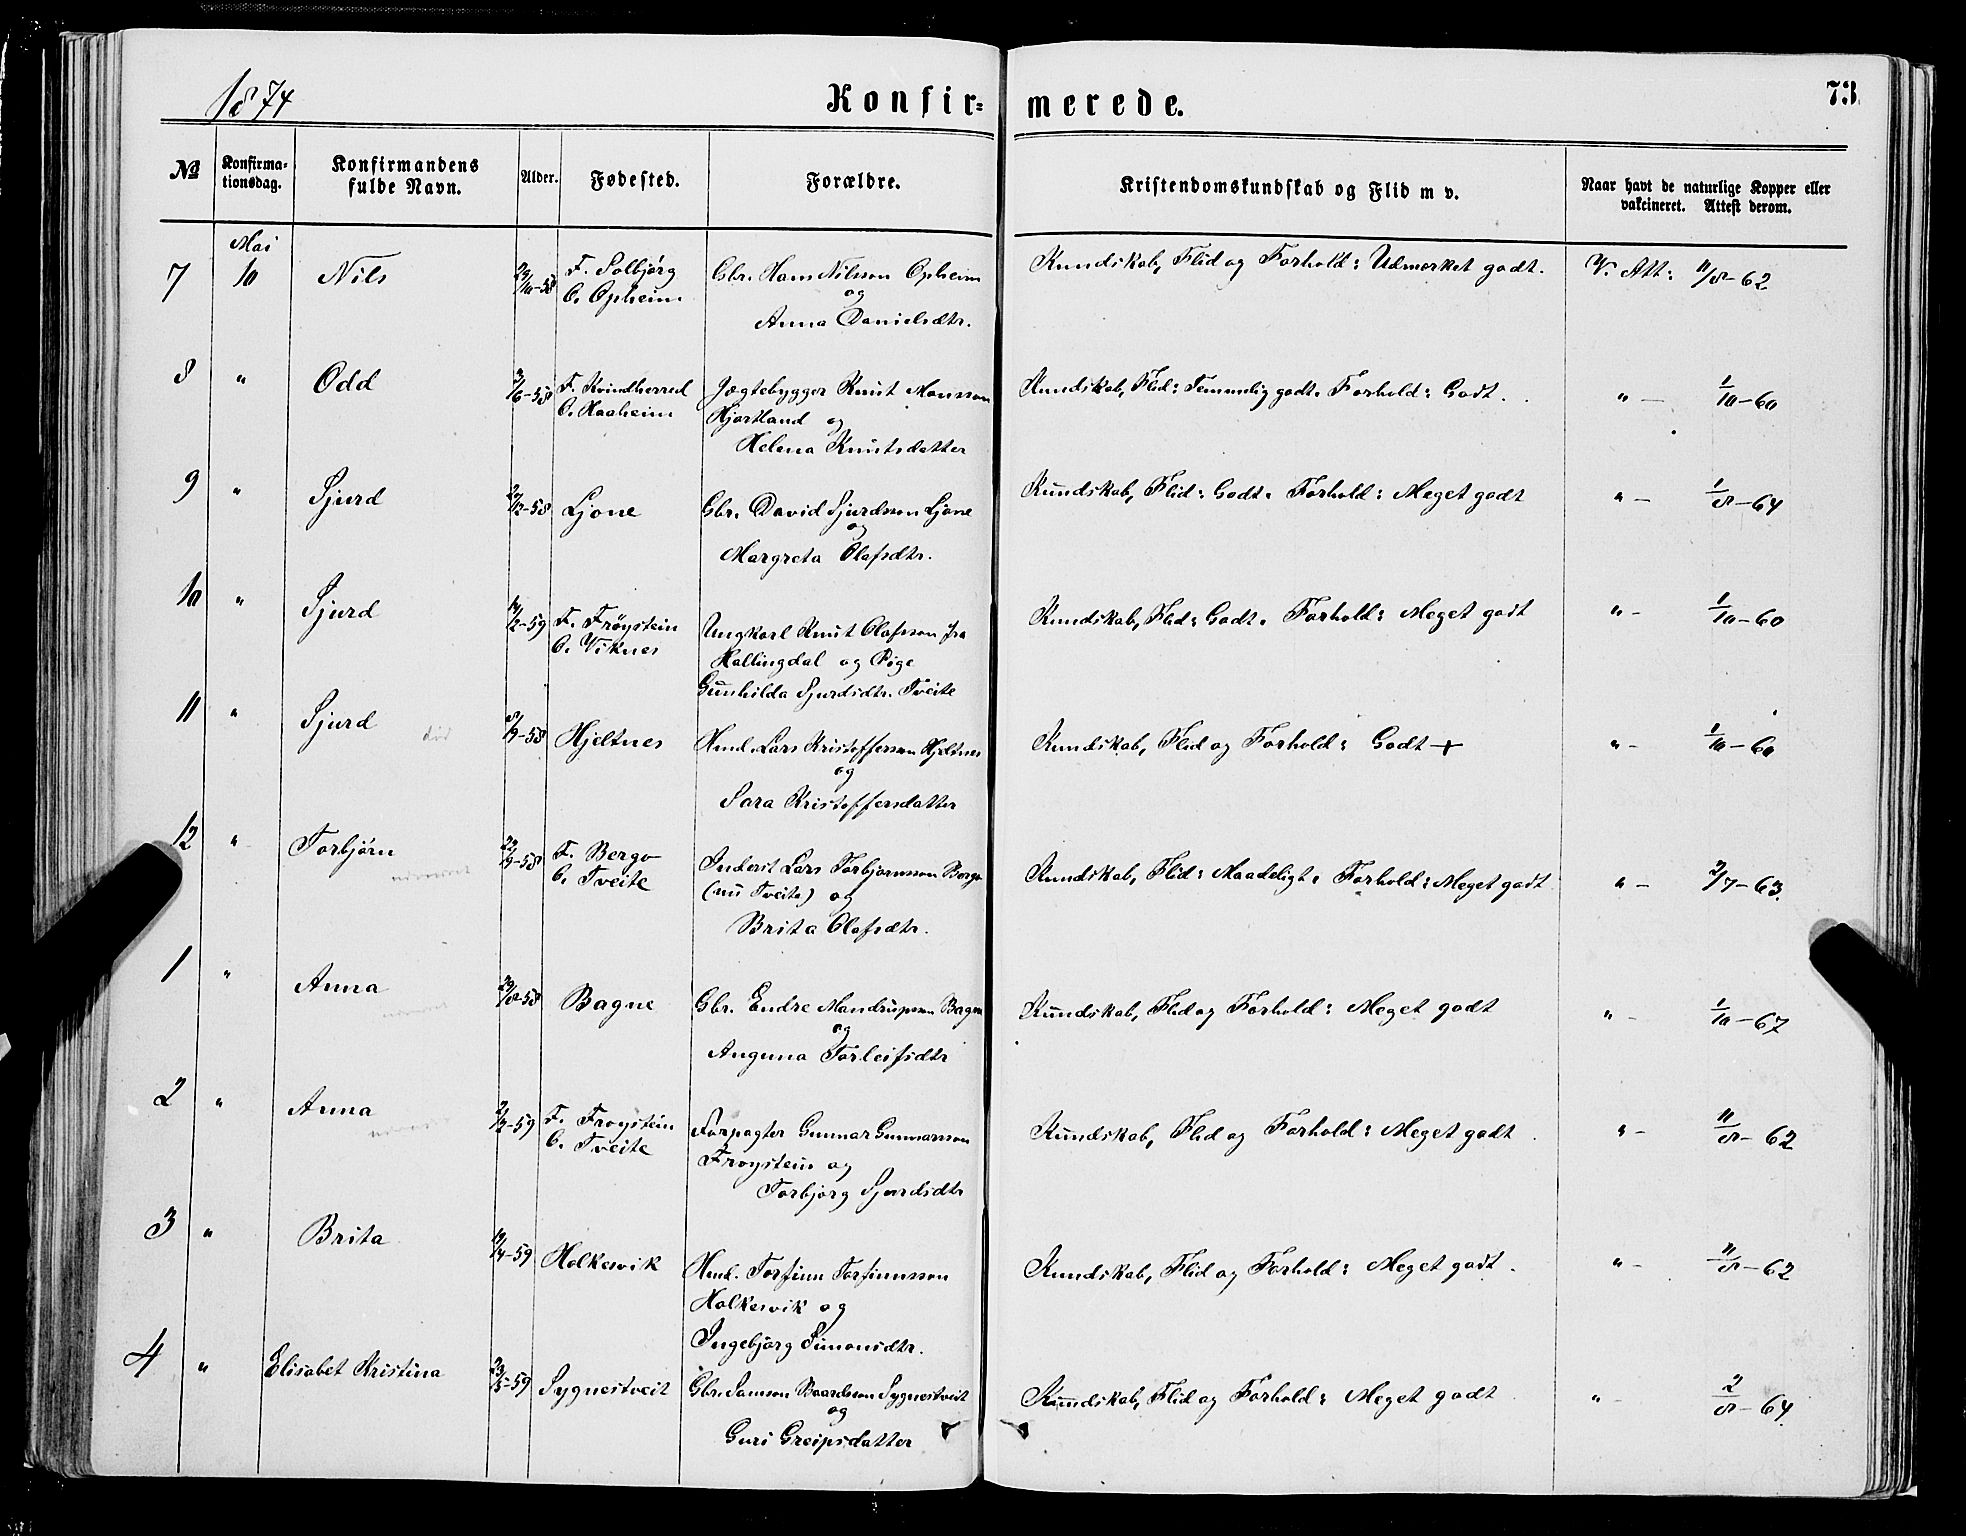 1874 Konfir- merede. 73.
№ Konfirma-tionsdag. Konfirmandens fulde Navn. Alder. Fødested. Forældre. Kristendomskundskab og Flid m v. Naar havt de naturlige Kopper eller vakcineret. Attest derom.
Mai
7 10 Nils 29/10-58 F. Solbjørg Gbr. Hans Nilsson Opheim Kundskab, Flid og Forhold: Udmerket godt. V. Att: 11/8-62
O. Opheim og
Anna Danielsdtr.
8 " Odd /6-58 F. Kvindherred Jægtebygger Knut Monsson Kundskab, Flid: Temmelig godt. Forhold: Godt. " — 1/10-60
O. Haaheim Hjortland og
Helena Knutsdatter
9 " Sjurd /12-58 Ljone Gbr. David Sjurdsson Ljone Kundskab, Flid: Godt. Forhold: Meget godt " — 1/8-64
og
Margreta Olafsdtr.
10 " Sjurd /2-59 F. Frøystein Ungkarl Knut Olafsson fra Kundskab, Flid: Godt. Forhold: Meget godt " — 1/10-60
O. Viknes Hallingdal og Pige
Gunhilda Sjurdsdtr. Tveite
11 " Sjurd død 8/9-58 Hjeltnes Hmd. Lars Kristoffersson Hjeltnes Kundskab, Flid og Forhold: Godt + " — 1/10-60
og
Sara Kristoffersdatter
12 " Torbjørn 22/9-58 F. Berge Inderst Lars Torbjørnsson Berge Kundskab, Flid: Maadeligt. Forhold: Meget godt " — 2/7-63.
O. Tveite (nu Tveite) og
Brita Olafsdtr.
1 " Anna 29/8-58 Bagne Gbr. Endre Mandrupsson Bagne Kundskab, Flid og Forhold: Meget godt " — 1/10-67
og
Anguna Torleifsdtr
2 " Anna 2/2-59 F. Froystein Forpagter Gunnar Gunnarsson Kundskab, Flid og Forhold: Meget godt " — 11/8-62
O. Tveite Froystein og
Torbjørg Sjurdsdtr
3 " Brita /4-59 Holkesvik Hmd. Torfinn Torfinnsson Kundskab, Flid og Forhold: Meget godt. " — 11/8-62
Holkesvik og
Ingebjørg Simonsdtr.
4 " Elisabet Kristina 23/5-59 Sygnestveit Gbr. Samson Baardsson Sygnestveit Kundskab, Flid og Forhold: Meget godt " — 2/8-64.
og
Guri Greipsdatter